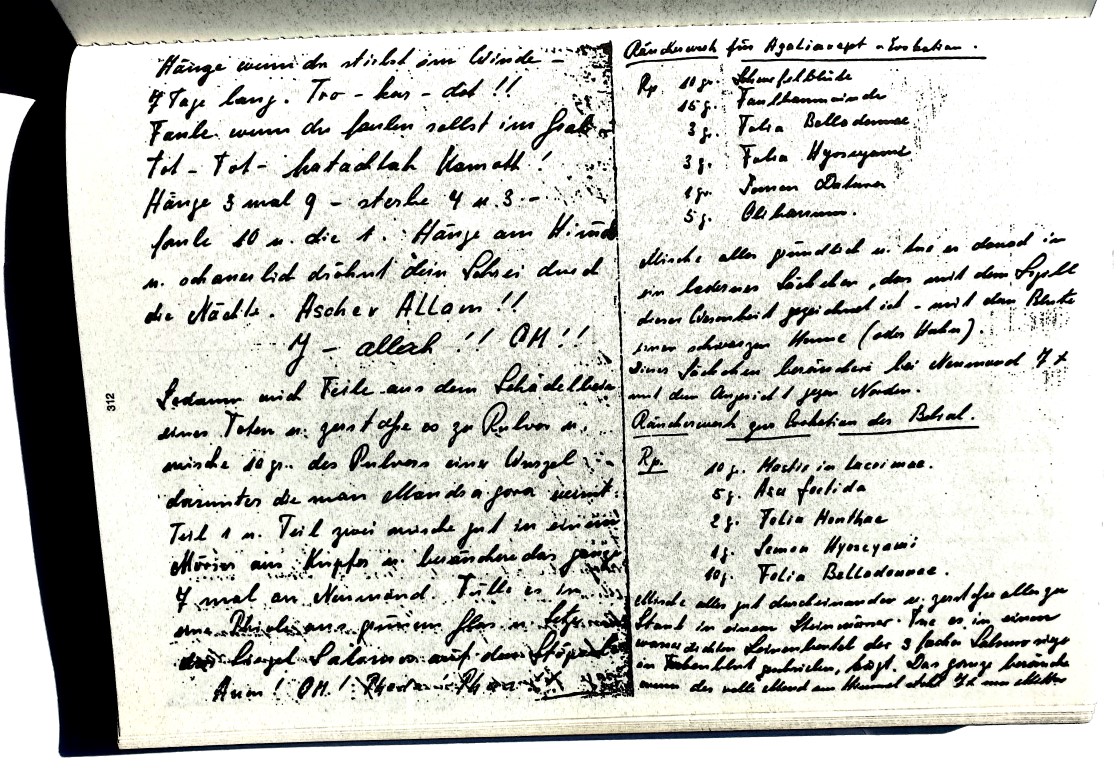 Hänge wenn du stirbst im Winde –
7 Tage lang. Tro – kar – dot !!
Faule wenn du faulen sollst im Grab
Tot – Tot – katachtah Kamath !
Hänge 3 mal 9 – sterbe 4 u. 3 –
faule 10 u. die 1. Hänge am
u. schauerlich dröhnt dein Schrei durch
die Nächte. Ascher ALLam !!
Y – allah !! OM !!
Sodann Teile aus dem
eines Toten u. zerstoße es zu Pulver u.
mische 10 gr. des Pulvers einer Wurzel
darunter die man Mandragora nennt.
Teil 1 u. Teil zwei mische gut in einem
Mörser aus Kupfer u. beräuchere das ganze
7 mal an Neumond. Fülle es in
eine Phiole aus Glas u.
Siegel Salomos auf den
Aum ! OM !
312
Räucherwerk für Evokation.
Rp 10 gr. Schwefelblüte
15 g. Faulbaumrinde
3 g. Folia Belladonnae
3 g. Folia Hyoscyami
1 gr. Semen Daturae
5 g. Olibanum.
Mische alles gründlich u. tue es danach in
ein ledernes Säckchen, das mit dem Sigill
dieser Wesenheit gezeichnet ist – mit dem Blute
einer schwarzen Henne (oder Hahn).
Dieses Säckchen beräuchere bei Neumond 7 x
mit dem Angesicht gegen Norden.
Räucherwerk zur Evokation des Belial.
Rp. 10 g. Mastix in lacrimae.
5 g. Asa foetida
2 g. Folia Menthae
1 g. Semen Hyoscyami
10 g. Folia Belladonnae.
Mische alles gut durcheinander u. zerstoße alles zu
Staub in einem Steinmörser. Tue es in einen
Leinenbeutel der 3 fache
in Das ganze beräuchere
wenn der volle Mond am Himmel steht 7 x um